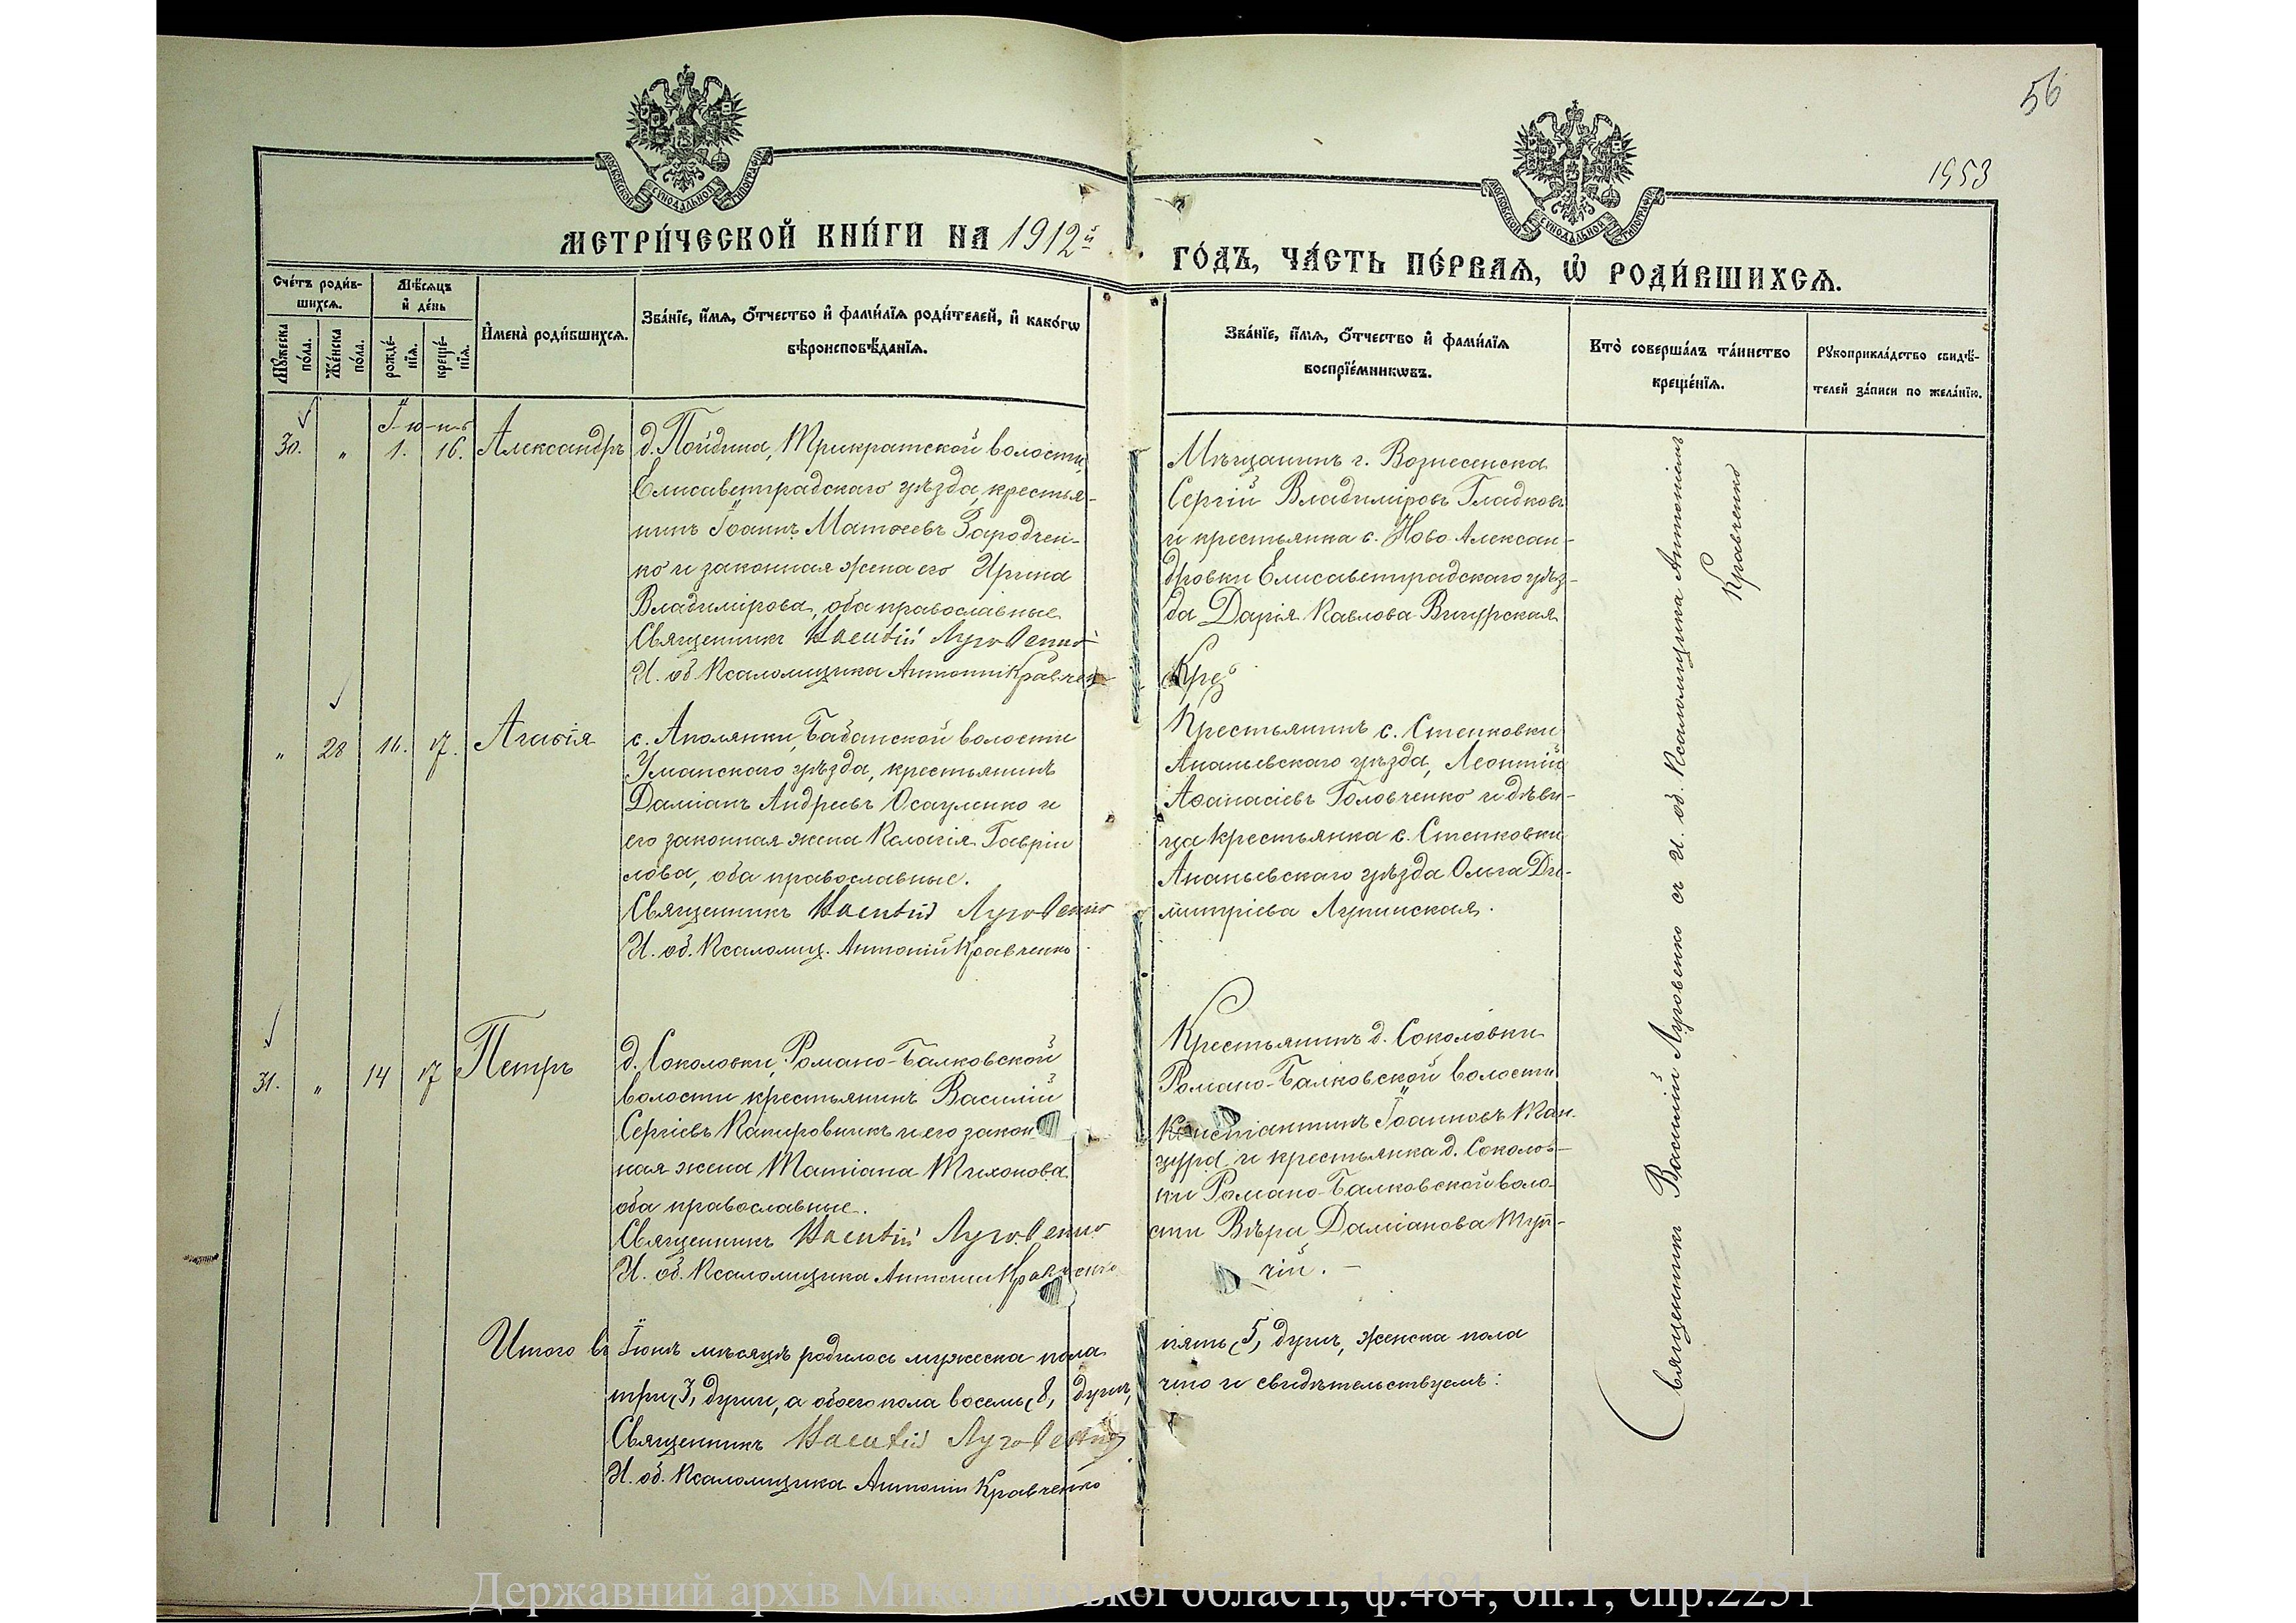 56
1953
МОСКОВСКОЙ СѴНОДАЛЬНОЙ ТИПОГРАФІИ
МОСКОВСКОЙ СѴНОДАЛЬНОЙ ТИПОГРАФІИ
МЕТРИ́ЧЕСКОЙ КНИ́ГИ НА 1912й
ГО́ДЪ, ЧА́СТЬ ПЕ́РВАѦ, Ѡ҆ РОДИ́ВШИХСѦ.
Сче́тъ роди́в-
шихсѧ.
Мꙋ́жеска по́ла.
Же́нска по́ла.
Мѣ́сѧцъ
и҆ де́нь
рожде́-
нїѧ.
креще́-
нїѧ.
И҆мена̀ роди́вшихсѧ.
Зва́нїе, и҆́мѧ, ѻ҆́тчество и҆ фами́лїѧ роди́телей, и҆ како́гѡ
вѣроисповѣ́данїѧ.
Зва́нїе, и҆́мѧ, ѻ҆́тчество и҆ фами́лїѧ
воспрїе́мникѡвъ.
Кто̀ соверша́лъ та́инство
креще́нїѧ.
Рꙋкоприкла́дство свидѣ́-
телей за́писи по жела́нїю.
І-ю-н-ь
30. " 1. 16. Александръ
д. Пойдина, Трикратской волости,
Елисаветградскаго уѣзда, крестья-
нинъ Іоаннъ Матѳеевъ Зародчен-
ко и законная жена его Ирина
Владимірова, оба православные
Священникъ Василій Луговенко
И. об. Псаломщика Антоній Кравченко
Мѣщанинъ г. Вознесенска
Сергій Владиміровъ Гладковъ
и крестьянка с. Ново Алексан-
дровки Елисаветградскаго уѣз-
да Дарія Павлова
Кре
" 28 11. 17. Агаѳія
с. Аполянки, Бабанской волости
Уманскаго уѣзда, крестьянинъ
Даміанъ Андреевъ Осауленко и
его законная жена Пелагія Гаврі
лова, оба православные.
Священникъ Василій Луговенко
И. об. Псаломщ. Антоній Кравченко
Крестьянинъ с. Степковки
Ананьевскаго уѣзда, Леонтій
Аѳанасіевъ Головченко и дѣви-
ца крестьянка с. Степковки
Ананьевскаго уѣзда Ольга Ди-
митріева Лупинская.
31. " 14 17 Петръ
д. Соколовки, Романо-Балковской
волости крестьянинъ Василій
Сергіевъ Капировникъ и его закон
ная жена Татіана Тихонова
оба православные.
Священникъ Василій Луговенко
И. об. Псаломщика Антоній Кравченко
Крестьянинъ д. Соколовки
Романо-Балковской волости
Константинъ Іоанновъ Ман-
цура и крестьянка д. Соколов-
ки Романо-Балковской воло-
сти Вѣра Даміанова Туп-
чій. -
Священникъ Василій Луговенко съ И. об. Псаломщика Антоніемъ
Кравченко
Итого въ Іюнѣ мѣсяцѣ родилось мужеска пола
пять (5) душъ, женска пола
три (3) души, а обоего пола восемь (8) душъ,
что и свидѣтельствуемъ:
Священникъ Василій Луговенко
И. об. Псаломщика Антоній Кравченко
Державний архів Миколаївської області, ф.484, оп.1, спр.2251